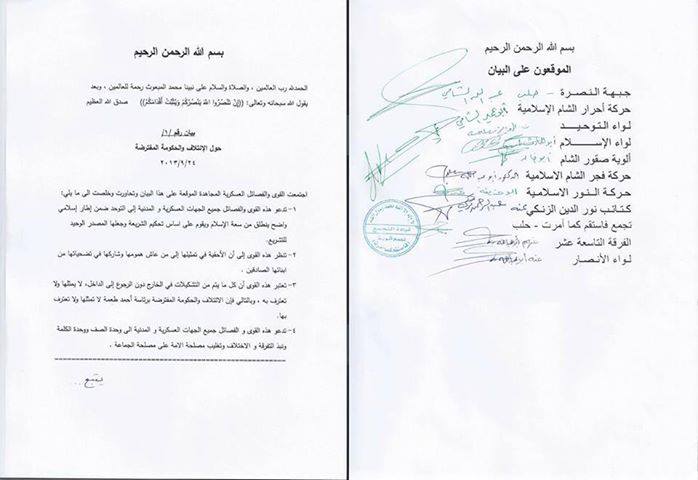 بسم الله الرحمن الرحيم
الحمدلله رب العالمين ، والصلاة والسلام على نبينا محمد المبعوث رحمة للعالمين ، وبعد
يقول الله سبحانه وتعالى: ((إِنْ تَنْصُرُوا اللهَ يَنْصُرْكُمْ وَيُثَبِّتْ أَقْدَامَكُمْ)) صدق الله العظيم
بيان رقم /١/
حول الإئتلاف والحكومة المفترضة
٢٠١٣/٩/٢٤
اجتمعت القوى والفصائل العسكرية المجاهدة الموقعة على هذا البيان وتحاورت وخلصت الى ما يلي:
١- تدعو هذه القوى والفصائل جميع الجهات العسكرية و المدنية إلى التوحد ضمن إطار إسلامي
واضح ينطلق من سعة الإسلام ويقوم على اساس تحكيم الشريعة وجعلها المصدر الوحيد
للتشريع.
٢- تنظر هذه القوى إلى أن الأحقية في تمثيلها إلى من عاش همومها وشاركها في تضحياتها من
ابنائها الصادقين .
٣- تعتبر هذه القوى أن كل ما يتم من التشكيلات في الخارج دون الرجوع إلى الداخل، لا يمثلها ولا
تعترف به ، وبالتالي فإن الائتلاف والحكومة المفترضة برئاسة أحمد طعمة لا تمثلها ولا تعترف
بها.
٤- تدعو هذه القوى و الفصائل جميع الجهات العسكرية و المدنية الى وحدة الصف ووحدة الكلمة
ونبذ التفرقة و الاختلاف وتغليب مصلحة الامة على مصلحة الجماعة .
يتبع...
بسم الله الرحمن الرحيم
الموقعون على البيان
جبهة النصرة - حلب
حركة أحرار الشام الإسلامية
لواء التوحيد
لواء الإسلام
ألوية صقور الشام
حركة فجر الشام الاسلامية
حركة النور الاسلامية
كتائب نور الدين الزنكي
تجمع فاستقم كما أمرت - حلب
الفرقة التاسعة عشر
لواء الأنصار